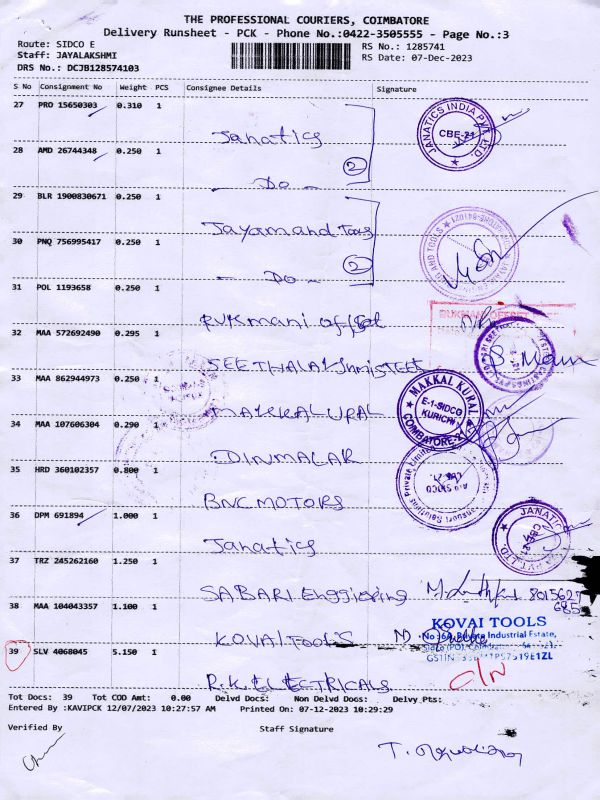 THE PROFESSIONAL COURIERS, COIMBATORE
Delivery Runsheet - PCK - Phone No.:0422-3505555 - Page No.:3
Route: SIDCO E
RS No.: 1285741
Staff: JAYALAKSHMI
RS Date: 07-Dec-2023
DRS No.: DCJB128574103
S No Consignment No Weight PCS Consignee Details Signature
27 PRO 15650303 0.310 1
Janatics
JANATICS INDIA PVT. LTD. CBE-21
28 AMD 26744348 0.250 1
2
- Do -
29 BLR 1900830671 0.250 1
Jayamand Tools
30 PNQ 756995417 0.250 1
2
- Do -
31 POL 1193658 0.250 1
Rukmani offset
32 MAA 572692490 0.295 1
SEETHALAKSHMI STEEL
33 MAA 862944973 0.250 1
MAKKAL KURAL
E-1-SIDCO
KURICHI
COIMBATORE-2
MAKKALURAL
34 MAA 107606304 0.290 1
DINMALAR
35 HRD 360102357 0.800 1
BNC MOTORS
36 DPM 691894 1.000 1
Janatics
JANATICS
CBE-21
37 TRZ 245262160 1.250 1
SABARI Enggieping 8015627
685
38 MAA 104043357 1.100 1
KOVAI TOOLS
KOVAI TOOLS
No: 6A, Private Industrial Estate,
39 SLV 4068045 5.150 1
R.K ELECTRICALS
C/N
Tot Docs: 39 Tot COD Amt: 0.00 Delvd Docs: Non Delvd Docs: Delvy Pts:
Entered By :KAVIPCK 12/07/2023 10:27:57 AM Printed On: 07-12-2023 10:29:29
Verified By Staff Signature